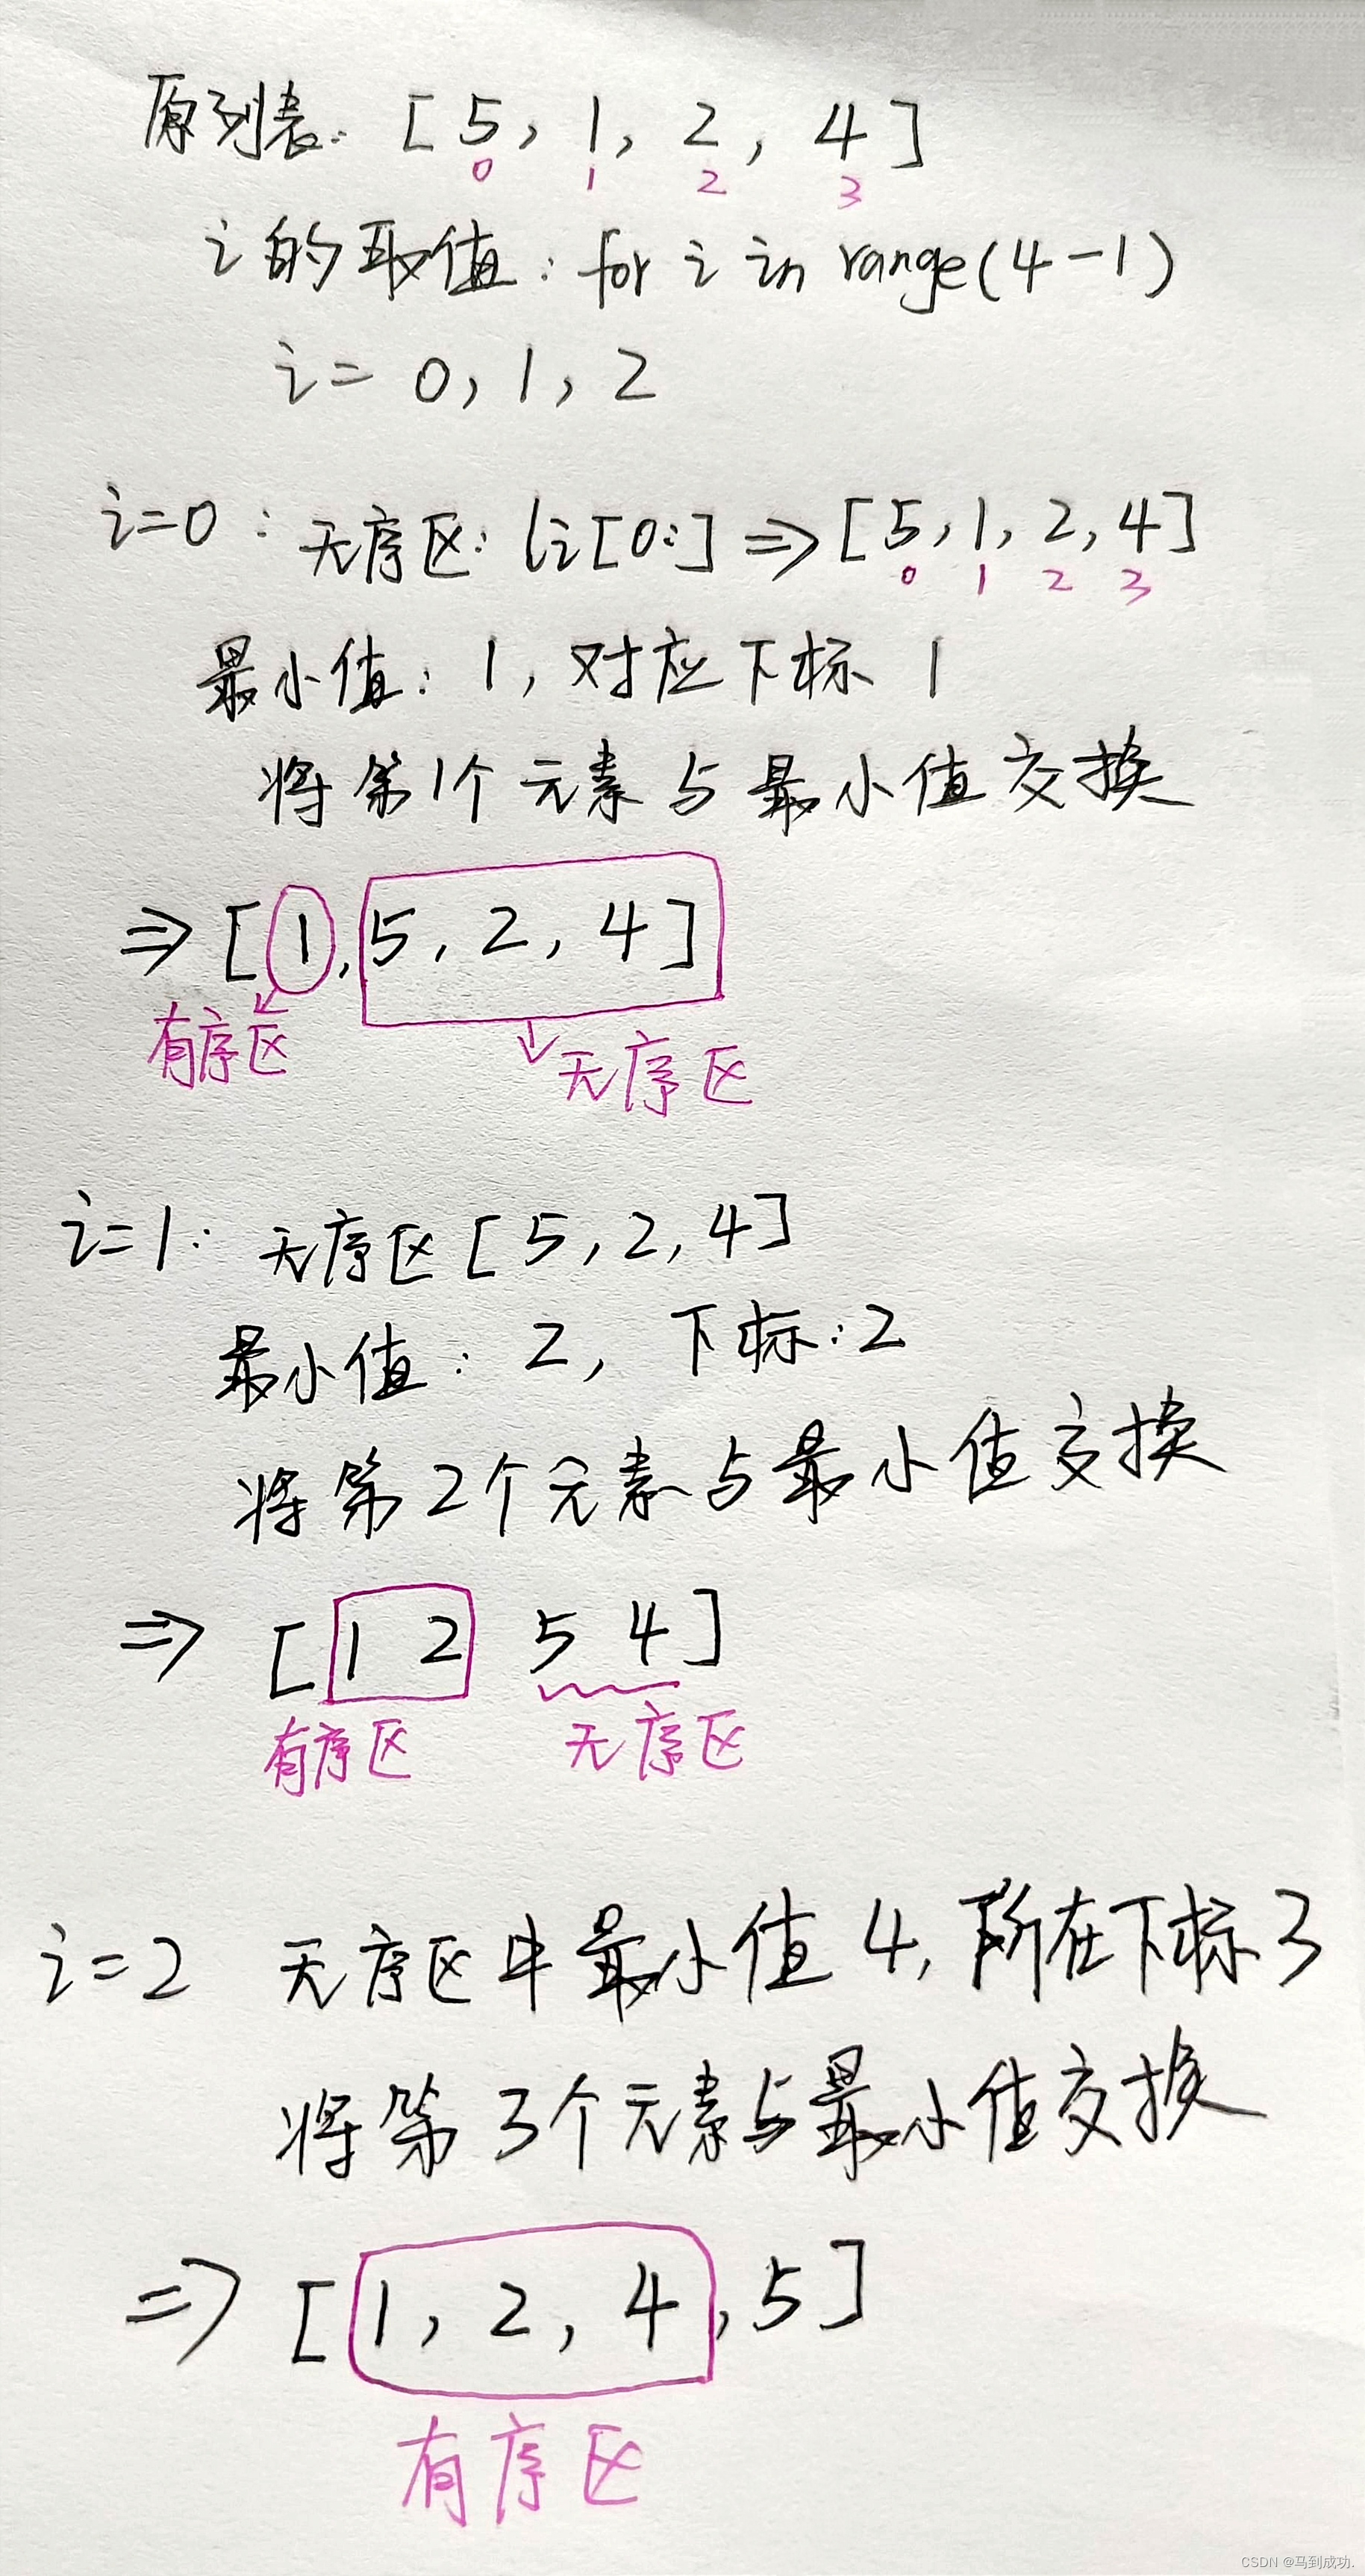 原列表: [ 5, 1, 2, 4 ]
0 1 2 3
i 的取值: for i in range(4-1)
i= 0, 1, 2
i=0: 无序区: li[0:] => [5,1,2,4]
0 1 2 3
最小值: 1, 对应下标 1
将第1个元素与最小值交换
=> [ 1, 5, 2, 4 ]
有序区
无序区
i=1: 无序区 [5,2,4]
最小值: 2, 下标:2
将第2个元素与最小值交换
=> [ 1 2 5 4 ]
有序区 无序区
i=2 无序区中最小值 4, 所在下标3
将第3个元素与最小值交换
=> [ 1, 2, 4, 5 ]
有序区
CSDN @马到成功.